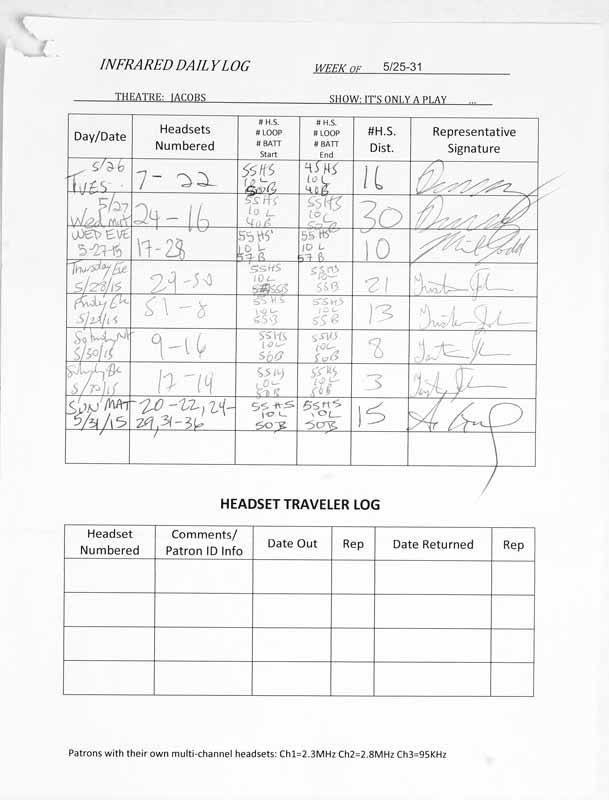 INFRARED DAILY LOG WEEK OF 5/25-31
THEATRE: JACOBS SHOW: IT'S ONLY A PLAY ...
Day/Date Headsets Numbered # H.S. # LOOP # BATT Start # H.S. # LOOP # BATT End #H.S. Dist. Representative Signature
5/26 TUES. 7-22 55HS 10L 50B 45HS 10L 40B 16
5/27 Wed mat 24-16 55HS 10L 40B 55HS 10L 50B 30
WED EVE 5-27-15 17-28 55HS 10L 57B 55HS 10L 57B 10
Thursday Eve 5/28/15 29-50 55HS 10L 55B 55HS 10L 55B 21
Friday Eve 5/29/15 51-8 55HS 10L 55B 55HS 10L 55B 13
Saturday Mat 5/30/15 9-16 55HS 10L 50B 55HS 10L 50B 8
Saturday Eve 5/30/15 17-19 55HS 10L 50B 55HS 10L 50B 3
SUN MAT 5/31/15 20-22, 24-29, 31-36 55HS 10L 50B 55HS 10L 50B 15
HEADSET TRAVELER LOG
Headset Numbered Comments/ Patron ID Info Date Out Rep Date Returned Rep
Patrons with their own multi-channel headsets: Ch1=2.3MHz Ch2=2.8MHz Ch3=95KHz